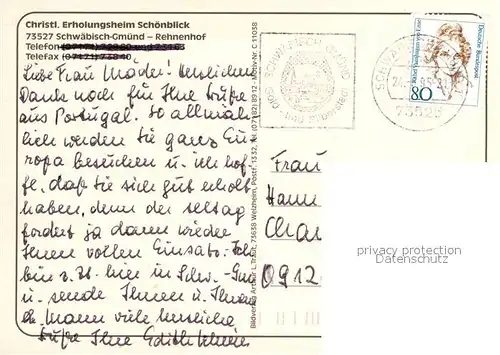 Christl. Erholungsheim Schönblick
73527 Schwäbisch-Gmünd – Rehnenhof
Telefon
Telefax
Liebe Frau Mader! Herzlichen
Dank noch für Ihre Grüße
aus Portugal. So allmäh-
lich werden Sie ganz Eu-
ropa besuchen u. ich hof-
fe, daß Sie sich gut erholt
haben, denn der Alltag
fordert ja dann wieder
Ihren vollen Einsatz. Ich
bin z. Zt. hier in Schw.-Gmü
u. sende Ihnen u. Ihrem
Mann viele herzliche
Grüße Ihre Edith
Bildverlag Arthur F. Traut, 73638 Welzheim, Postf. 1332, Tel. (07182) 8912 - Motiv-Nr. C 11038
SCHWÄBISCH GMÜND
Gold- und Silberstadt
SCHWÄBISCH
73525
Deutsche Bundespost
Rahel Varnhagen von Ense
80
Frau
Hann
0912
privacy protection
Datenschutz